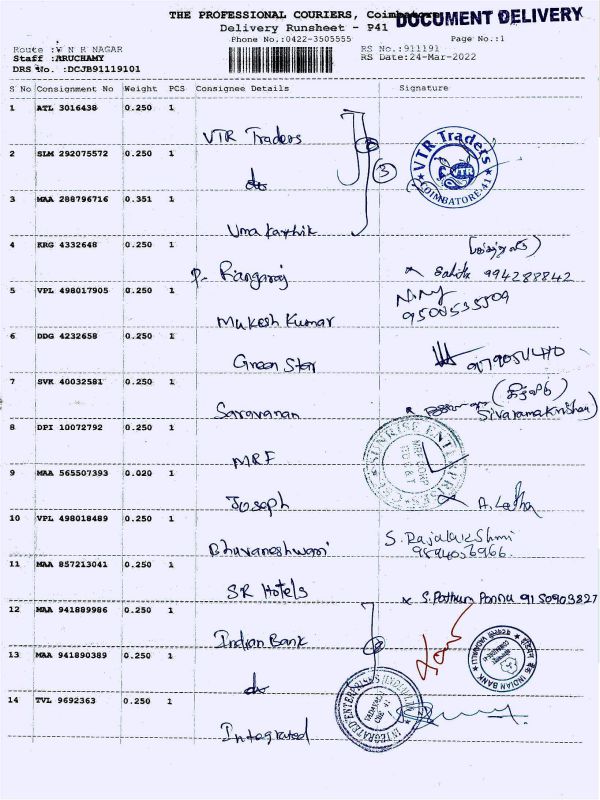 THE PROFESSIONAL COURIERS, Coimbatore
DOCUMENT DELIVERY
Delivery Runsheet - P41
Phone No.:0422-3505555
Page No.:1
Route :V N R NAGAR
RS No.:911191
Staff :ARUCHAMY
RS Date:24-Mar-2022
DRS No. :DCJB91119101
S No Consignment No Weight PCS Consignee Details Signature
1 ATL 3016438 0.250 1
VTR Traders
VTR Traders
VTR
COIMBATORE-41
2 SLM 292075572 0.250 1
do
3
3 MAA 288796716 0.351 1
Uma Karthik
4 KRG 4332648 0.250 1
P. Rangaraj
994288842
5 VPL 498017905 0.250 1
Mukesh Kumar
9508535509
6 DDG 4232658 0.250 1
Green Star
7 SVK 40032581 0.250 1
Saravanan
Sivaramakrishnan
8 DPI 10072792 0.250 1
MRF
SUNRISE ENTERPRISES
9 MAA 565507393 0.020 1
Joseph
A. Latha
10 VPL 498018489 0.250 1
Bhuvaneshwari
S. Rajalakshmi
11 MAA 857213041 0.250 1
SR Hotels
9150903827
12 MAA 941889986 0.250 1
Indian Bank
INDIAN BANK
13 MAA 941890389 0.250 1
do
14 TVL 9692363 0.250 1
Integrated
INTEGRATED ENTERPRISES